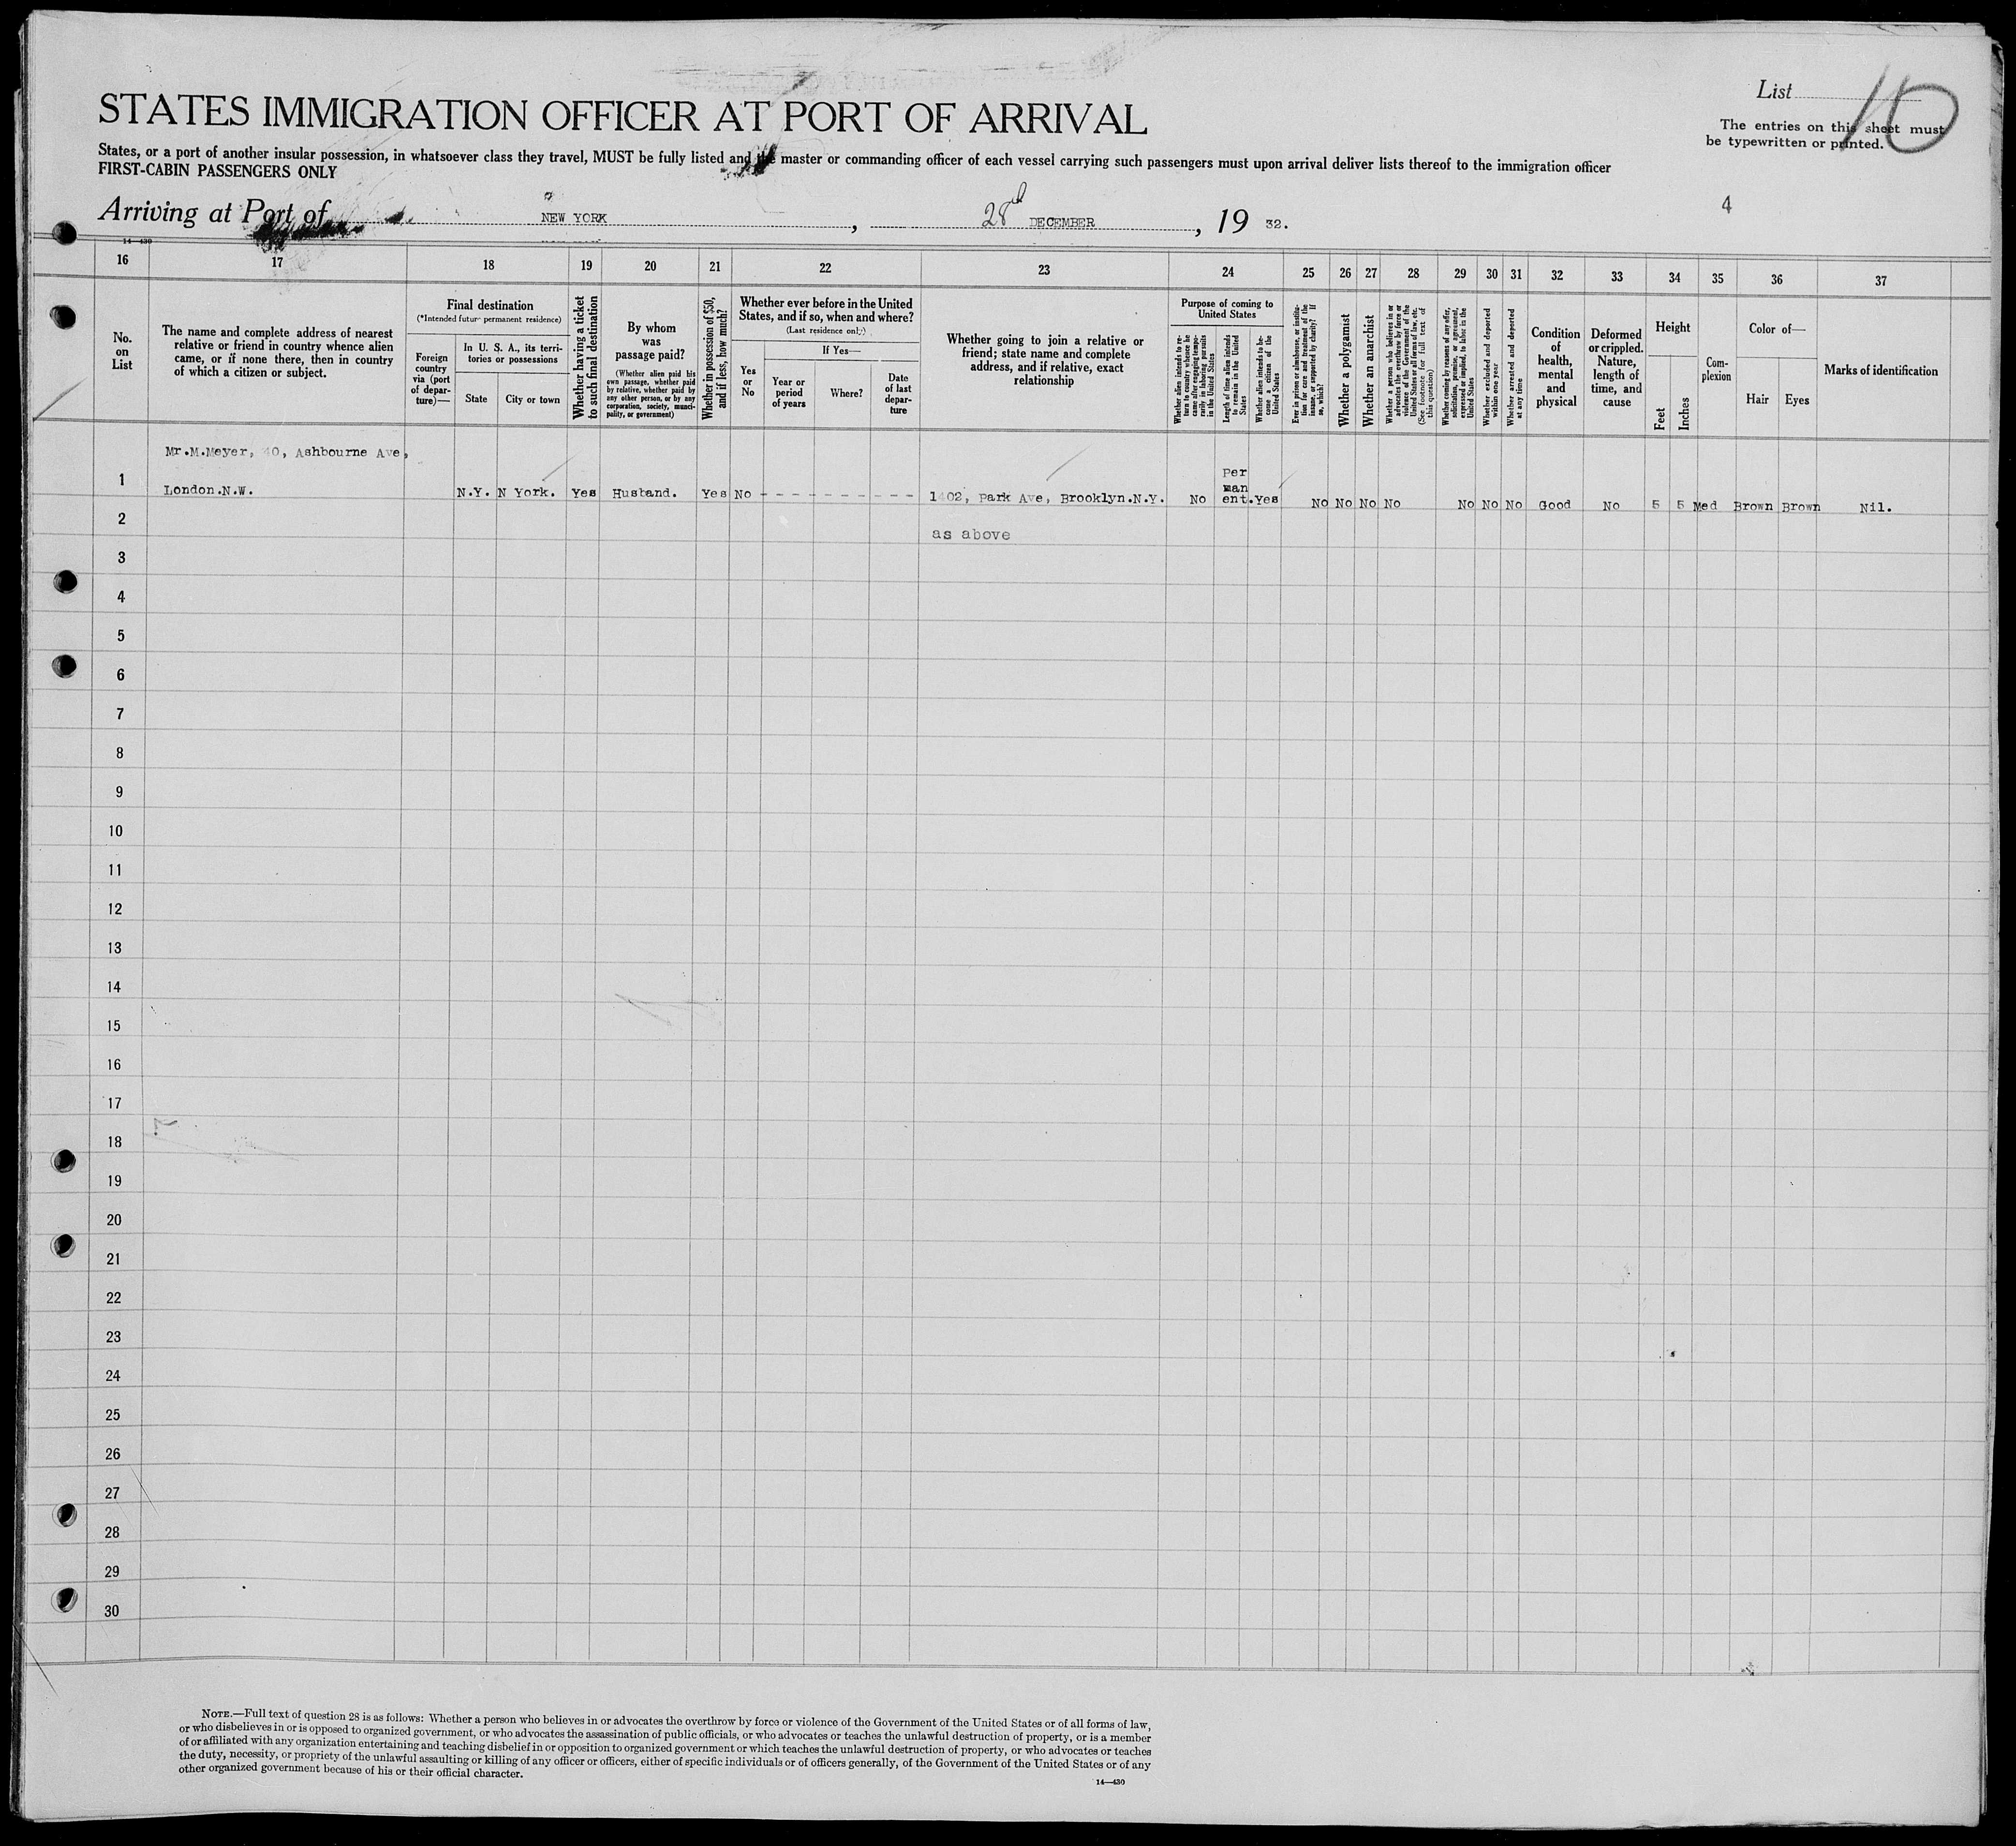 List 10
The entries on this sheet must
be typewritten or printed.
STATES IMMIGRATION OFFICER AT PORT OF ARRIVAL
States, or a port of another insular possession, in whatsoever class they travel, MUST be fully listed and the master or commanding officer of each vessel carrying such passengers must upon arrival deliver lists thereof to the immigration officer
FIRST-CABIN PASSENGERS ONLY
Arriving at Port of NEW YORK, 28th DECEMBER, 19 32.
4
14—430
16 17 18 19 20 21 22 23 24 25 26 27 28 29 30 31 32 33 34 35 36 37
No.
on
List
The name and complete address of nearest
relative or friend in country whence alien
came, or if none there, then in country
of which a citizen or subject.
Final destination
(*Intended future permanent residence)
Foreign
country
via (port
of depar-
ture)—
In U. S. A., its terri-
tories or possessions
State
City or town
Whether having a ticket
to such final destination
By whom
was
passage paid?
(Whether alien paid his
own passage, whether paid
by relative, whether paid by
any other person, or by any
corporation, society, munici-
pality, or government)
Whether in possession of $50,
and if less, how much?
Whether ever before in the United
States, and if so, when and where?
(Last residence only)
Yes
or
No
If Yes—
Year or
period
of years
Where?
Date
of last
depar-
ture
Whether going to join a relative or
friend; state name and complete
address, and if relative, exact
relationship
Purpose of coming to
United States
Whether alien intends to re-
turn to country whence he
came after engaging tempo-
rarily in laboring pursuits
in the United States
Length of time alien intends
to remain in the United
States
Whether alien intends to be-
come a citizen of the
United States
Ever in prison or almshouse, or institu-
tion for care and treatment of the
insane, or supported by charity? If
so, which?
Whether a polygamist
Whether an anarchist
Whether a person who believes in or
advocates the overthrow by force or
violence of the Government of the
United States or all forms of law, etc.
(See footnote for full text of
this question)
Whether coming by reasons of any offer,
solicitation, promise, or agreement,
expressed or implied, to labor in the
United States
Whether excluded and deported
within one year
Whether arrested and deported
at any time
Condition
of
health,
mental
and
physical
Deformed
or crippled.
Nature,
length of
time, and
cause
Height
Feet
Inches
Com-
plexion
Color of—
Hair
Eyes
Marks of identification
Mr.M.Meyer, 40, Ashbourne Ave,
1 London.N.W. N.Y. N York. Yes Husband. Yes No - - - - - - - - - - 1402, Park Ave, Brooklyn.N.Y. No Per
man
ent. Yes No No No No No No No Good No 5 5 Med Brown Brown Nil.
2 as above
3
4
5
6
7
8
9
10
11
12
13
14
15
16
17
18
19
20
21
22
23
24
25
26
27
28
29
30
NOTE.—Full text of question 28 is as follows: Whether a person who believes in or advocates the overthrow by force or violence of the Government of the United States or of all forms of law,
or who disbelieves in or is opposed to organized government, or who advocates the assassination of public officials, or who advocates or teaches the unlawful destruction of property, or is a member
of or affiliated with any organization entertaining and teaching disbelief in or opposition to organized government or which teaches the unlawful destruction of property, or who advocates or teaches
the duty, necessity, or propriety of the unlawful assaulting or killing of any officer or officers, either of specific individuals or of officers generally, of the Government of the United States or of any
other organized government because of his or their official character.
14—430